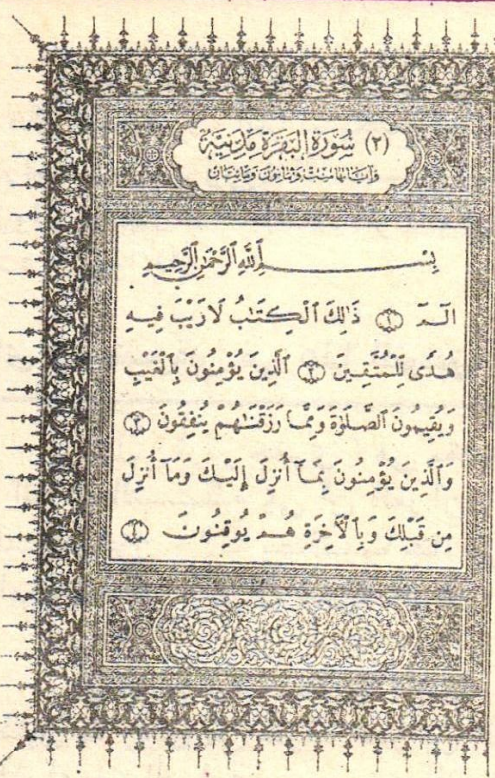 (٢) سُورَةُ البَقَرَة مَدَنِيَّة
وَآيَاتُهَا سِتٌّ وَثَمَانُونَ وَمِائَتَانِ
بِسْمِ ٱللَّهِ ٱلرَّحْمَٰنِ ٱلرَّحِيمِ
الٓمٓ ۝١ ذَٰلِكَ ٱلْكِتَٰبُ لَا رَيْبَ فِيهِ
هُدًى لِّلْمُتَّقِينَ ۝٢ ٱلَّذِينَ يُؤْمِنُونَ بِٱلْغَيْبِ
وَيُقِيمُونَ ٱلصَّلَوٰةَ وَمِمَّا رَزَقْنَٰهُمْ يُنفِقُونَ ۝٣
وَٱلَّذِينَ يُؤْمِنُونَ بِمَآ أُنزِلَ إِلَيْكَ وَمَآ أُنزِلَ
مِن قَبْلِكَ وَبِٱلْأٓخِرَةِ هُمْ يُوقِنُونَ ۝٤